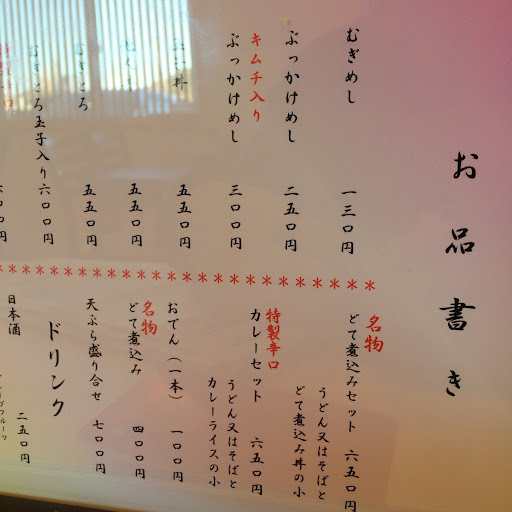 お品書き
むぎめし 一三〇円
ぶっかけめし 二五〇円
キムチ入り
ぶっかけめし 三〇〇円
五五〇円
五五〇円
五五〇円
むぎとろ玉子入り 六〇〇円
名物
どて煮込みセット 六五〇円
うどん又はそばと
どて煮込み丼の小
特製辛口
カレーセット 六五〇円
うどん又はそばと
カレーライスの小
おでん（一本） 一〇〇円
名物
どて煮込み 四〇〇円
天ぷら盛り合せ 七〇〇円
ドリンク
日本酒 二五〇円